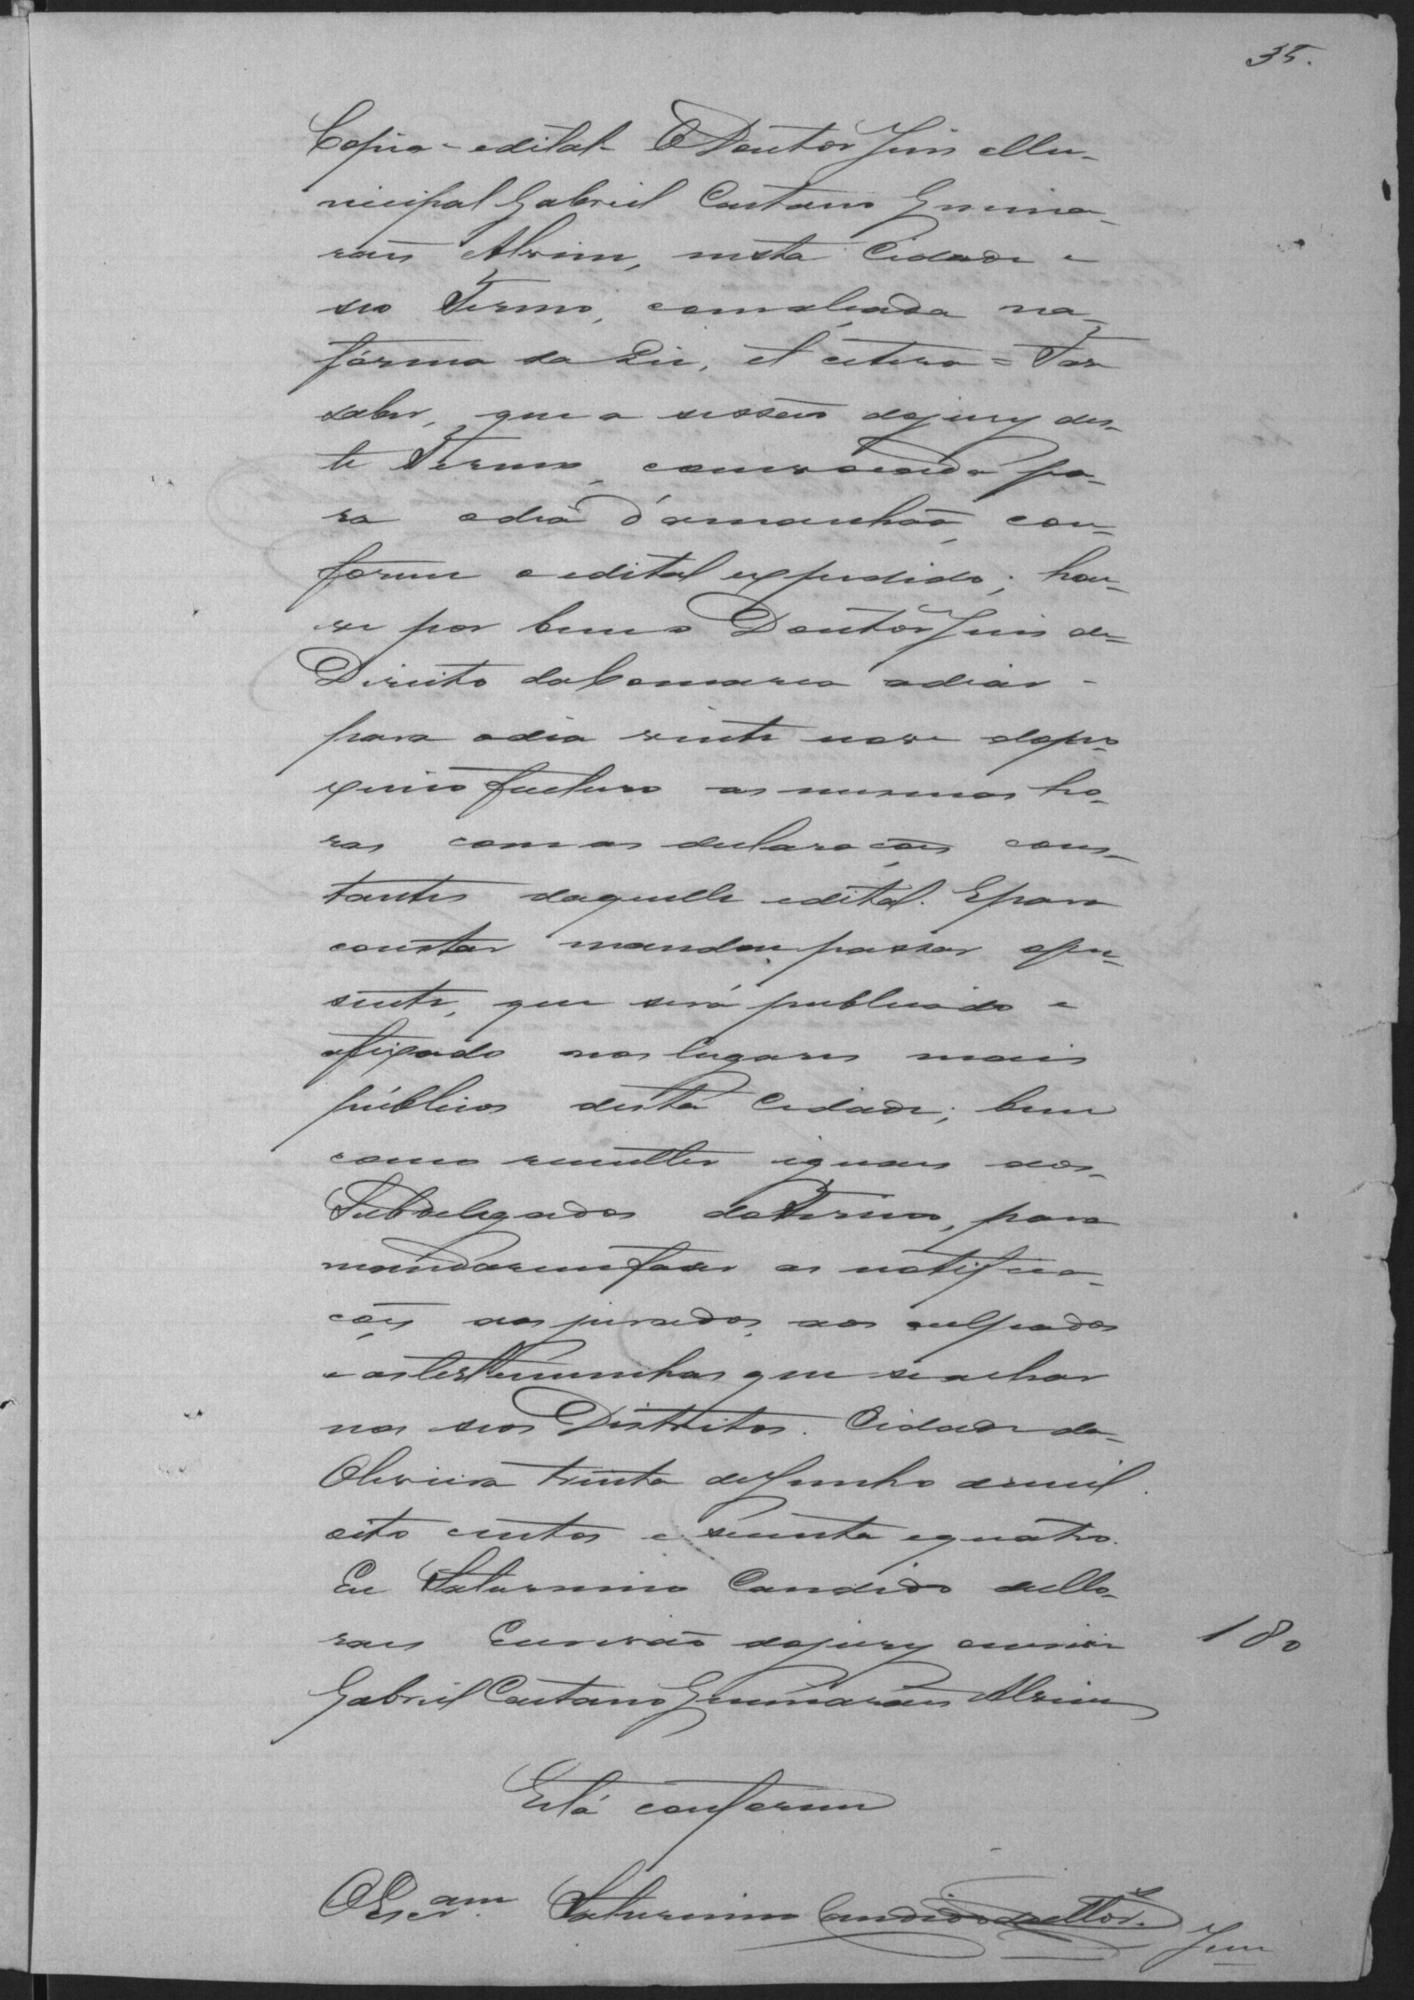 35.
Copia - edital - O Doutor Juis Mu-
nicipal Gabriel Caetano Guima-
rães Alvim, nesta Cidade e
seo Termo,                na
fórma da Lei, et cetera = Faz
saber, que a sessão do jury des-
te Termo, convocada pa-
ra o dia d'amanhão, con-
forme o edital expedido; hou-
ve por bem o Doutor Juis de
Direito da Comarca adiar -
para o dia vinte nove do pro-
ximo futuro as mesmas ho-
ras com as declarações cons-
tantes daquelle edital. E para
constar mandou passar o pre-
sente, que será publicado e
afixado nos lugares mais
públicos desta Cidade; bem
como remetter iguaes aos
Subdelegados do Termo, para
mandarem fazer as notifica-
ções aos jurados, aos culpados
e as testemunhas que se achar
nos seos Distritos. Cidade da
Oliveira trinta de Junho de mil
oito centos e setenta e quatro.
Eu Saturnino Candido de Mo-
raes Escrivão do jury escrevi
180
Gabriel Caetano Guimarães Alvim
Está conforme
O Escr.am Saturnino Candido de Mor.s